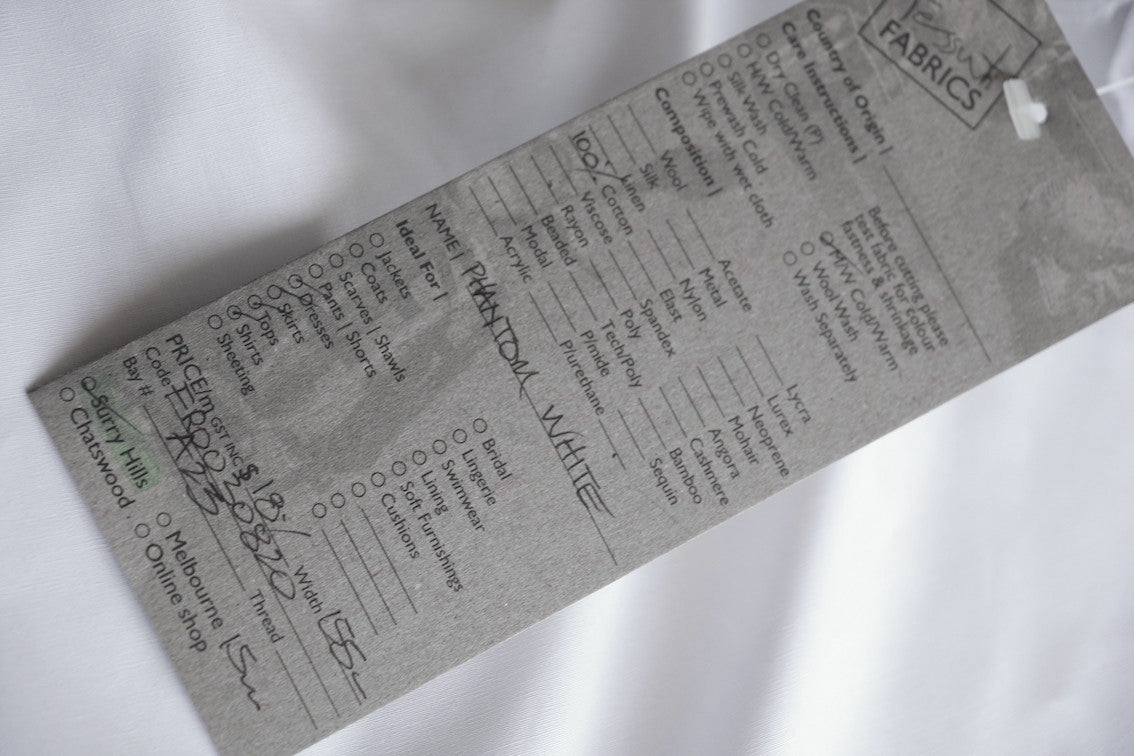 Tessuti
FABRICS
Country of Origin |
Care Instructions |
Dry Clean (P)
H/W Cold/Warm
Silk Wash
Prewash Cold
Wipe with wet cloth
Before cutting please
test fabric for colour
fastness & shrinkage
M/W Cold/Warm
Wool Wash
Wash Separately
Composition |
Wool
Silk
Linen
100% Cotton
Viscose
Rayon
Beaded
Modal
Acrylic
Acetate
Metal
Nylon
Elast
Spandex
Poly
Tech/Poly
P/mide
P/urethane
Lycra
Lurex
Neoprene
Mohair
Angora
Cashmere
Bamboo
Sequin
NAME | PHANTOM WHITE
Ideal For |
Jackets
Coats
Scarves | Shawls
Pants | Shorts
Dresses
Skirts
Tops
Shirts
Sheeting
Bridal
Lingerie
Swimwear
Lining
Soft Furnishings
Cushions
PRICE/m GST INC $ 18./ Width 155
Code
Bay # A23 Thread
Surry Hills
Chatswood
Melbourne 15m
Online shop